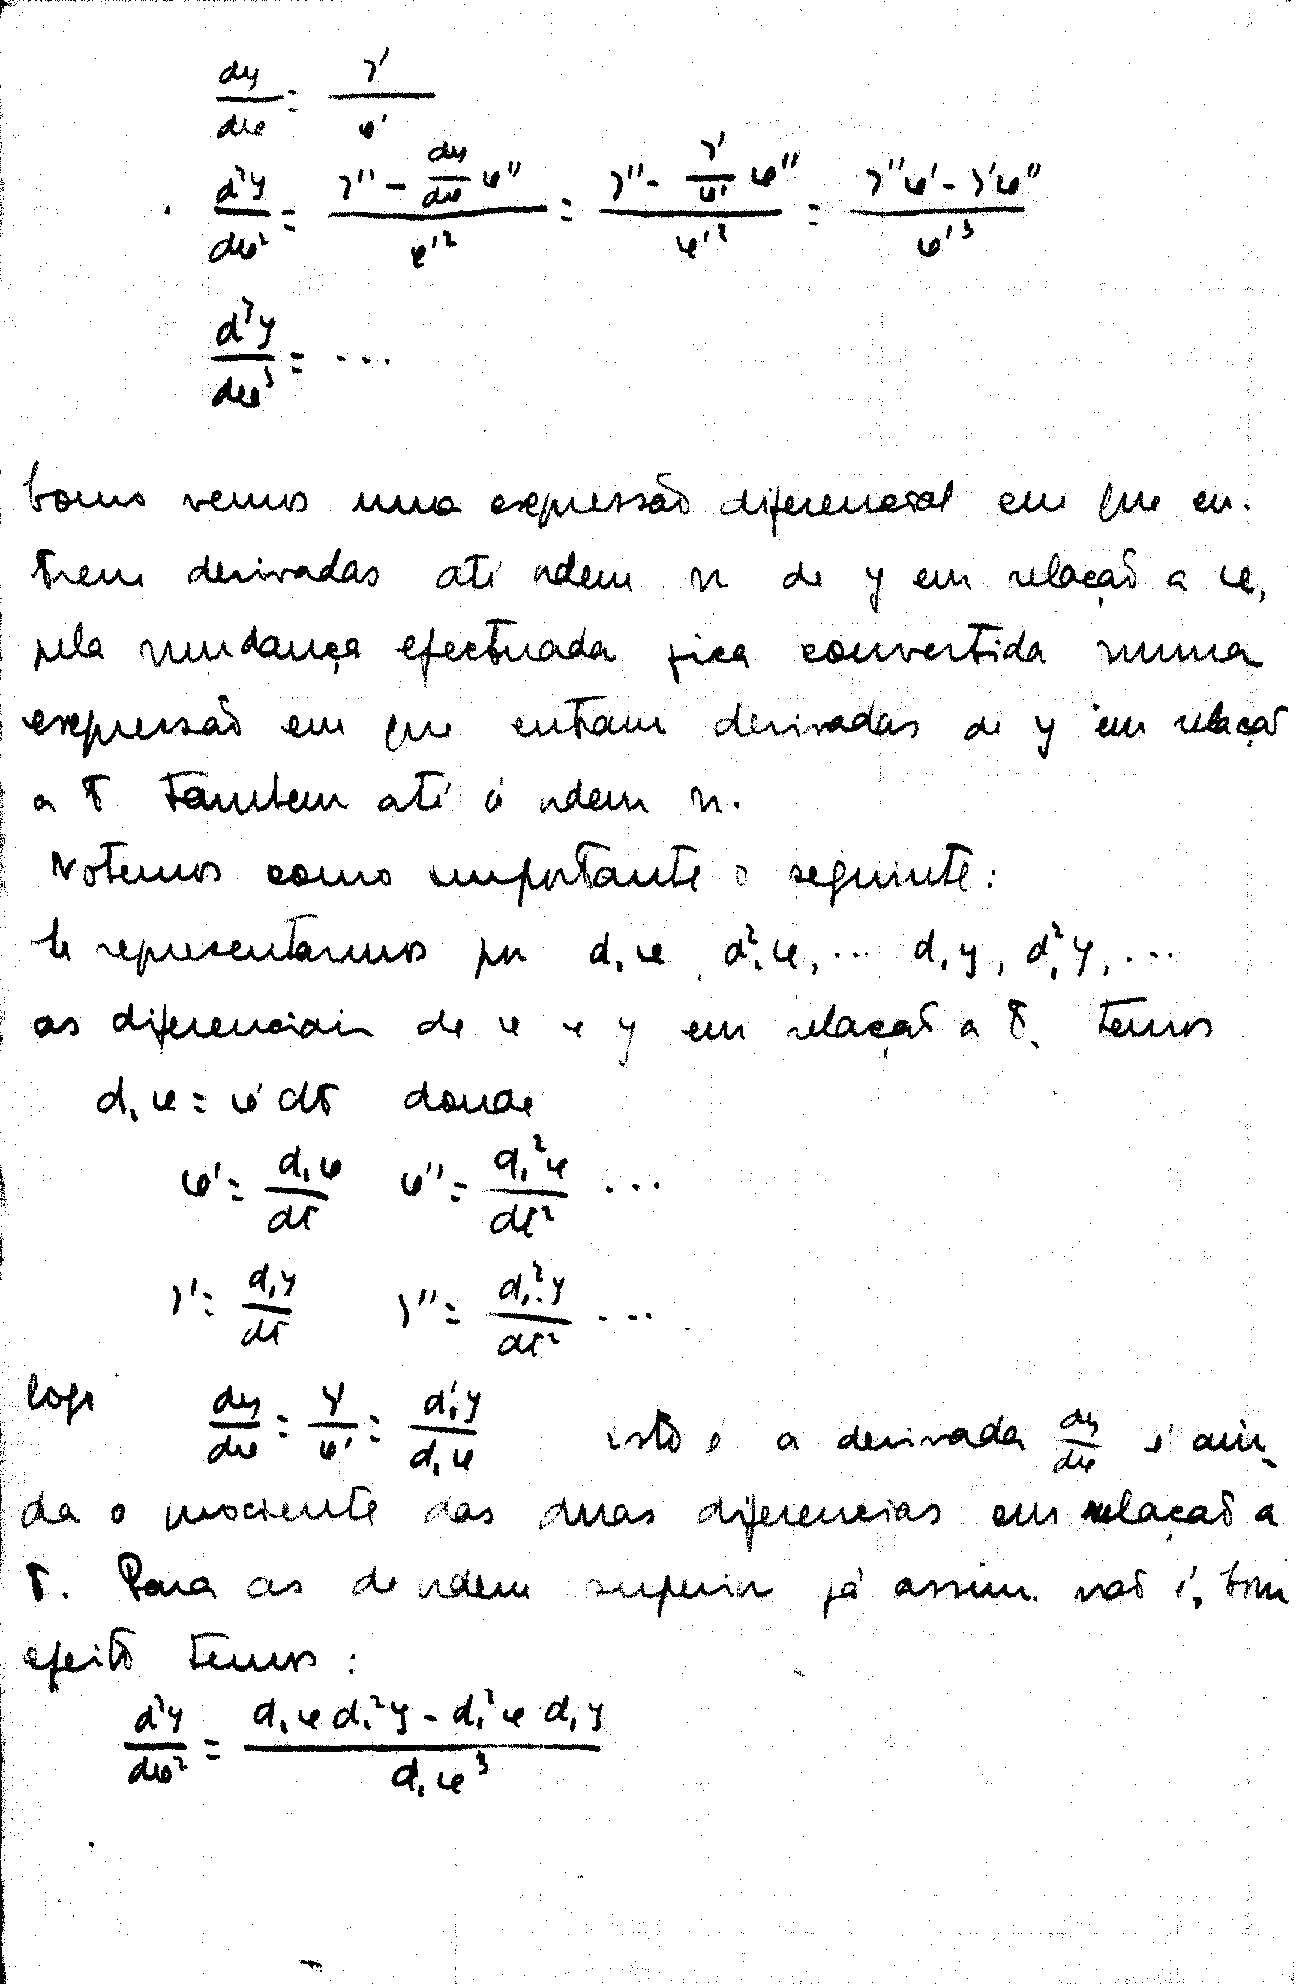 dy/dx = y'/x'
d²y/dx² = (y'' - dy/dx x'')/x'² = (y'' - y'/x' x'')/x'² = (y''x' - y'x'')/x'³
d³y/dx³ = ...
Como vemos uma expressão diferencial em que en-
trem derivadas até ordem n de y em relação a x,
pela mudança efectuada fica convertida numa
expressão em que entram derivadas de y em relação
a t tambem até á ordem n.
Notemos como importante o seguinte:
Se representarmos por d₁x, d₁²x, ... d₁y, d₁²y, ...
as diferenciais de x e y em relação a t, temos
d₁x = x' dt donde
x' = d₁x/dt x'' = d₁²x/dt² ...
y' = d₁y/dt y'' = d₁²y/dt² ...
logo dy/dx = y'/x' = d₁y/d₁x isto é a derivada dy/dx é ain-
da o quociente das duas diferenciais em relação a
t. Para as de ordem superior já assim não é, Com
efeito temos:
d²y/dx² = (d₁x d₁²y - d₁²x d₁y)/d₁x³